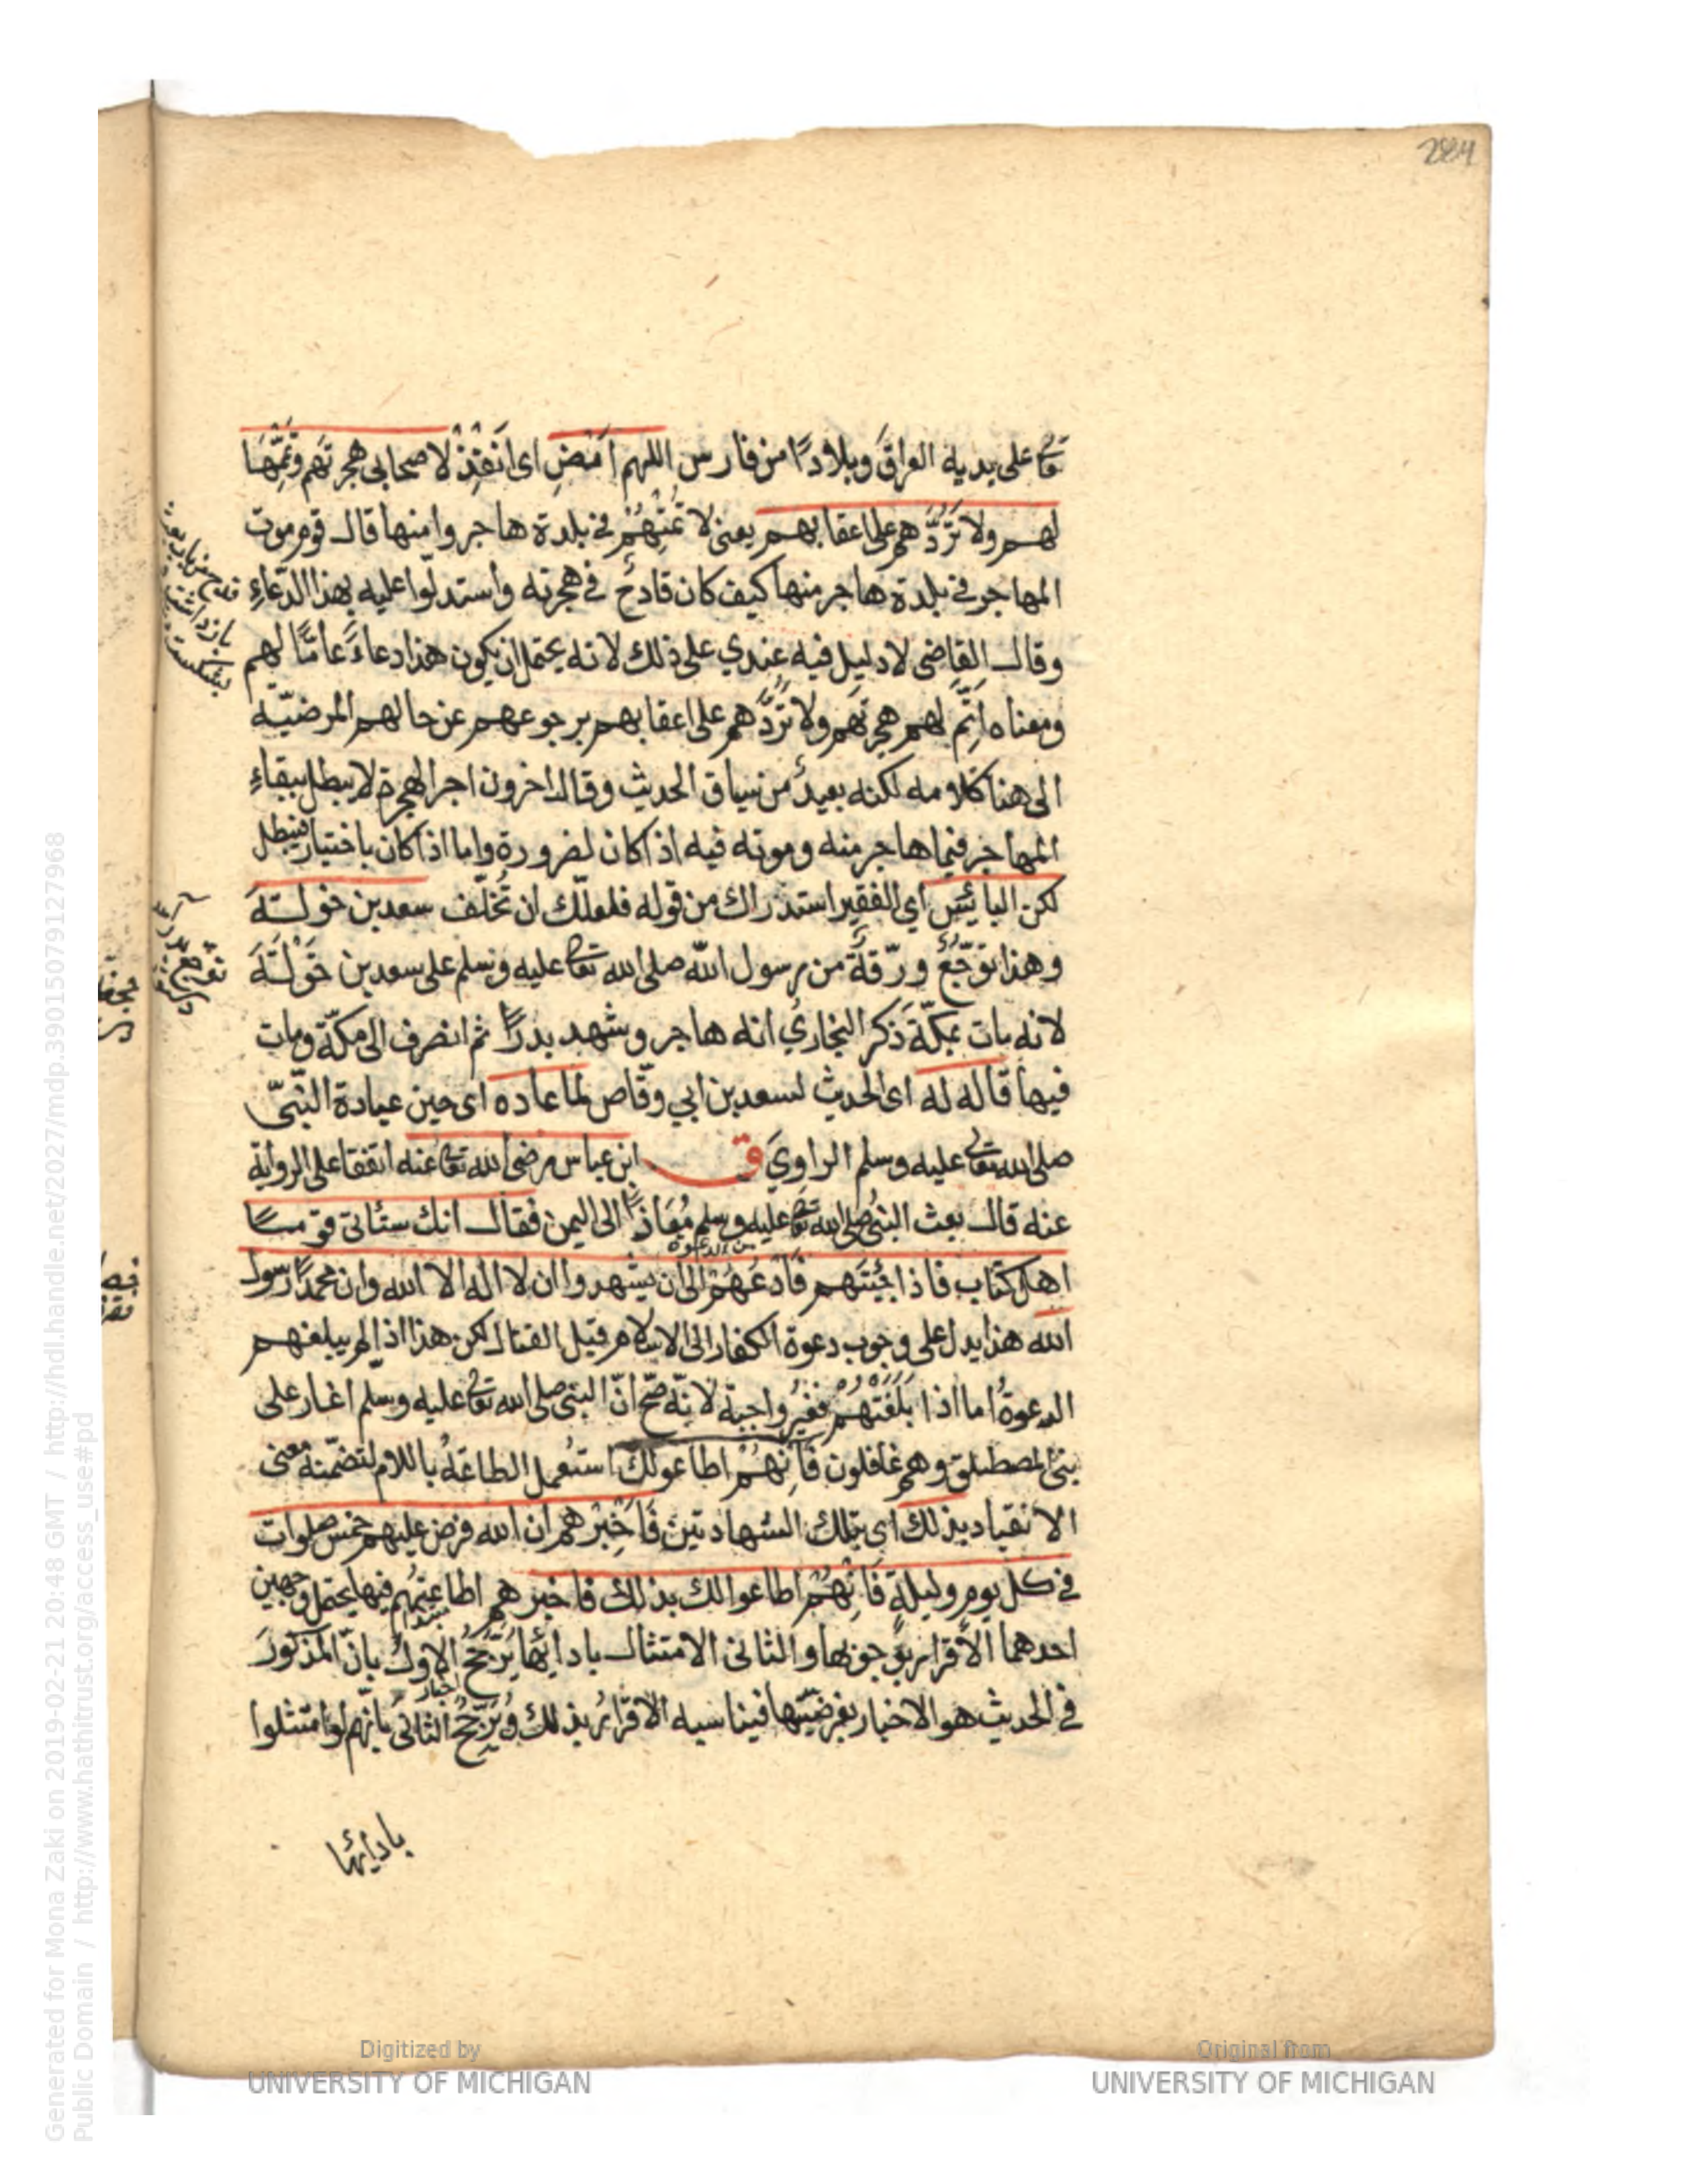 284
تعا على يديه العراق وبلادا من فارس اللهم امض اى انفذ لاصحابى هجرتهم وتمها
لهم ولا تردهم على اعقابهم يعنى لا تمتهم فى بلدة هاجروا منها قال قوم موت
المهاجر فى بلدة هاجر منها كيف كان قادح فى هجرته واستدلوا عليه بهذا الدعاء
وقال القاضى لا دليل فيه عندي على ذلك لانه يحتمل ان يكون هذا دعاء عاما لهم
ومعناه اتم لهم هجرتهم ولا تردهم على اعقابهم برجوعهم عن حالهم المرضية
الى هنا كلامه لكنه بعيد من سياق الحديث وقال اخرون اجر الهجرة لا يبطل ببقاء
المهاجر فيما هاجر منه وموته فيه اذا كان لضرورة واما اذا كان باختيار فيبطل
لكن البائس اي الفقير استدراك من قوله فلعلك ان تخلف سعد بن خولة
وهذا توجع ورقة من رسول الله صلى الله تعا عليه وسلم على سعد بن خولة
لانه مات بمكة ذكر البخاري انه هاجر وشهد بدرا ثم انصرف الى مكة ومات
فيها قاله له اى الحديث لسعد بن ابي وقاص لما عاده اى حين عيادة النبى
صلى الله تعا عليه وسلم الراوي ق ابن عباس رضى الله تعا عنه اتفقا على الرواية
عنه قال بعث النبى صلى الله تعا عليه وسلم معاذا الى اليمن فقال انك ستأتى قوما
من الدعوة
اهل كتاب فاذا جئتهم فادعهم الى ان يشهدوا ان لا اله الا الله وان محمدا رسول
الله هذا يدل على وجوب دعوة الكفار الى الاسلام قبل القتال لكن هذا اذا لم يبلغهم
الدعوة اما اذا بلغتهم فغير واجبة لانه صح ان النبى صلى الله تعا عليه وسلم اغار على
بنى المصطلق وهم غافلون فانهم اطاعوا لك استعمل الطاعة باللام لتضمنه معنى
الانقياد بذلك اى بتلك الشهادتين فاخبرهم ان الله فرض عليهم خمس صلوات
فى كل يوم وليلة فانهم اطاعوا لك بذلك فاخبرهم اطاعتهم فيها يحتمل وجهين
احدهما الاقرار بوجوبها والثانى الامتثال بادائها يرجح الاول بان المذكور
اخبار
فى الحديث هو الاخبار بفرضيتها فيناسبه الاقرار بذلك ويرجح الثانى بانهم لو امتثلوا
بادائها
Digitized by
UNIVERSITY OF MICHIGAN
Original from
UNIVERSITY OF MICHIGAN
Generated for Mona Zaki on 2019-02-21 20:48 GMT / http://hdl.handle.net/2027/mdp.39015079127968
Public Domain / http://www.hathitrust.org/access_use#pd